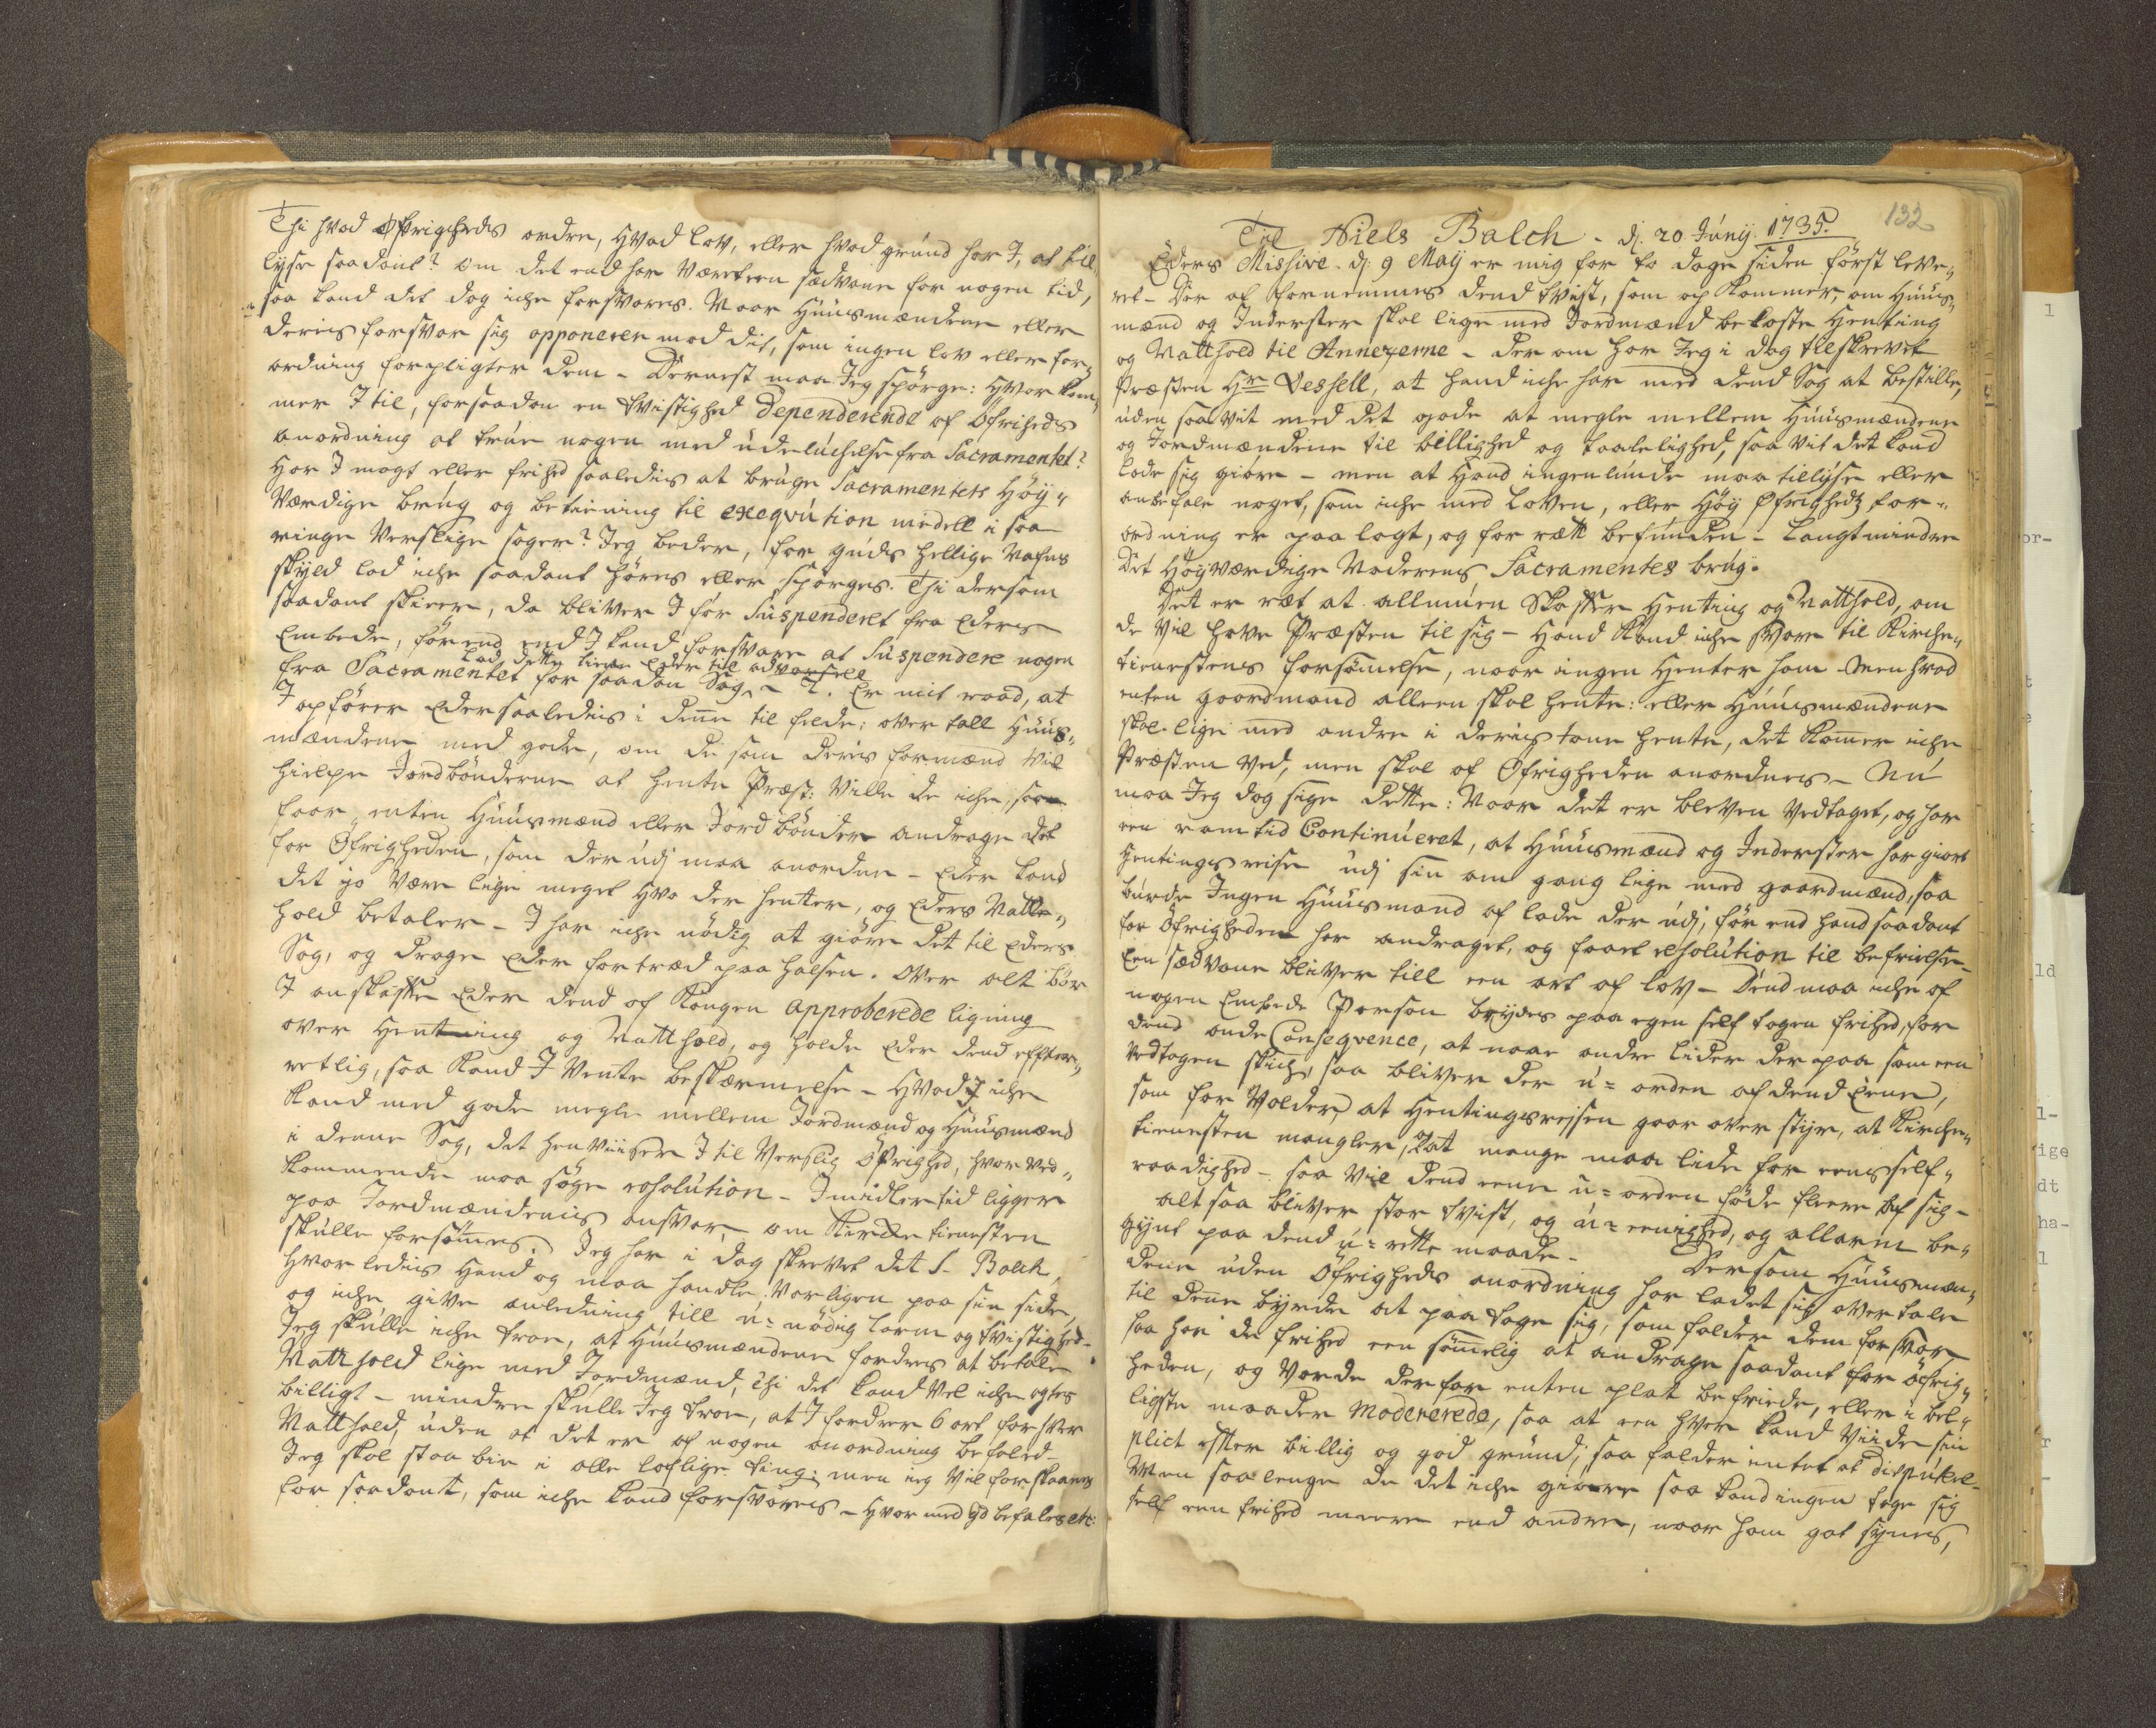 Thi hvad Øfrigheds ordre, Hvad lov, eller hvad grund har I, at til„
lyse saadant? om det end har Været een sædvane for nogen tid,
saa kand det dog iche forsvares. Naar Huusmændene eller
deris forsvar sig opponerer mod dit, som ingen lov eller for„
ordning forpligter dem - Dernest maa Jeg spörge: Hvor kom„
mer I til, for saadan en tvistighed dependerende af Öfrigheds
anordning at true nogen med udeluchelse fra Sacramentet?
Har I magt eller frihed saaledis at bruge Sacramentets Höÿ„
værdige brug og betiening til exeqvution middell i saa
ringe Verslige sager? Jeg beder, for guds hellige Nafns
skyld lad iche saadant høres eller spörges. Thi dersom
saadant skeer, da bliver I før Suspenderet fra Eders
Embede, førend end I kand forsvare at Suspendere nogen
Lad dette tiene Eder til advarsell
fra Sacramentet for saadan Sag. - 2. Er mit raad, at
I opfører Eder saaledis i denne tilfelde: overtall Huus„
mændene med gode, om de som deris formænd vil
hielpe Jordbönderne at hente Præst: Ville de iche, saa
faar enten Huusmænd eller Jordbönder andrage det
for Øfrigheden, som derudj maa anordne - Eder kand
det jo Være lige meget hvo der henter, og Eders Natte„
hold betaler - I har iche nødig at giøre det til Eders
Sag, og drage Eder fortræd paa halsen. Over alt bör
I anskaffe Eder dend af Kongen approberede ligning
over Hentning og Natthold, og holde Eder dend effter„
rettlig, saa kand I Vente beskærmelse - Hvad I iche
kand med gode megle mellem Jordmænd og Huusmænd
i denne Sag, det henviiser I til Verslig Öfrighed, hvor ved„
kommende maa søge resolution - Imidlertid ligger
paa Jordmændenis ansvar, om Kircke tienesten
skulle forsømmes. Jeg har i dag skrevet det S. Balch,
hvorledis Hand og maa handle Varligen paa sin side,
og iche give anledning till u=nödig larm og tvistighed -
Jeg skulle iche troe, at Huusmændene fordres at betale
Natthold lige med Jordmænd, thi det kand Vel iche agtes
billigt - mindre skulle Jeg troe, at I fordrer 6 ort for hver
Natthold, uden at det er af nogen anordning befaled -
Jeg skal staa bie i alle lovlige ting; men jeg Vil forskaanes
for saadant, som iche kand forsvares - Hvor med gd befales etc:
132
Til Niels Balch - dj. 20 Junij 1735.
Eders Missive dj. 9 Maij er mig for to dage siden først leve„
ret - Der af fornemmes dend tvist, som op kommer, om Huus„
mænd og Inderster skal lige med Jordmænd bekoste Henting
og Natthold til Annexerne - der om har Jeg i dag tilskrevet
Præsten Hr Vessell, at hand iche har med dend Sag at bestille,
uden saa vit med det gode at megle mellem Huusmændene
og Jordmændene til billighed og taalelighed, saa vit det kand
lade sig giøre - men at Hand ingenlunde maa tillyse eller
anbefale noget, som iche med Loven, eller Høÿ Øfrighedz for„
ordning er paa lagt, og for rætt befunden - Langt mindre
det Höÿværdige Naderens Sacramentes brug.
Det er ræt at allmuen skaffer Henting og Natthold, om
de Vil have Præsten til sig - Hand kand iche svare til Kirche„
tienestens forsømelse, naar ingen Henter ham - Men hvad
enten gaardmand alleene skal hente: eller Huusmændene
skal lige med andre i deris tour hente, det kommer iche
Præsten Ved, men skal af Øfrigheden anordnes - Nu
maa Jeg dog sige dette: Naar det er bleven Vedtaget, og har
een ramtid Continueret, at Huusmænd og Inderster har giort
Hentings reise udj sin om gang lige med gaardmænd, saa
burde Ingen Huusmand af lade der udj, før end hand saadant
for Öfrigheden har andraget, og faaet resolution til befrielse -
Een sædvane bliver till een art af lov - Dend maa iche af
nogen Embede Person brydes paa egen self tagen frihed, for
dend onde Conseqvence, at naar andre lider der paa som een
Vedtagen skich, saa bliver der u=orden af dend Eene,
som for Volder, at Hentingsreisen gaar over styr, at Kirche„
tienesten mangler, at mange maa lide for eens self„
raadighed - saa Vil dend eene u=orden føde fleere af sig -
alt saa bliver stor tvist, og u=eenighed, og allarm be„
gynt paa dend u=rette maade - Dersom Huusmæn„
dene uden Öfrigheds anordning har ladet sig overtale
til denne byrde at paa tage sig, som falder dem for svar,
saa har de frihed een sømmelig at andrage saadant for Øfrig„
heden, og Vorde derfor enten plat befriede, eller i bel„
ligste maader Modererede, saa at een hver kand Viide sin
plict efter billig og god grund; saa falder intet at disputere -
Men saa lenge de det iche giører saa kand ingen tage sig
self een frihed meere end andre, naar ham got synes,